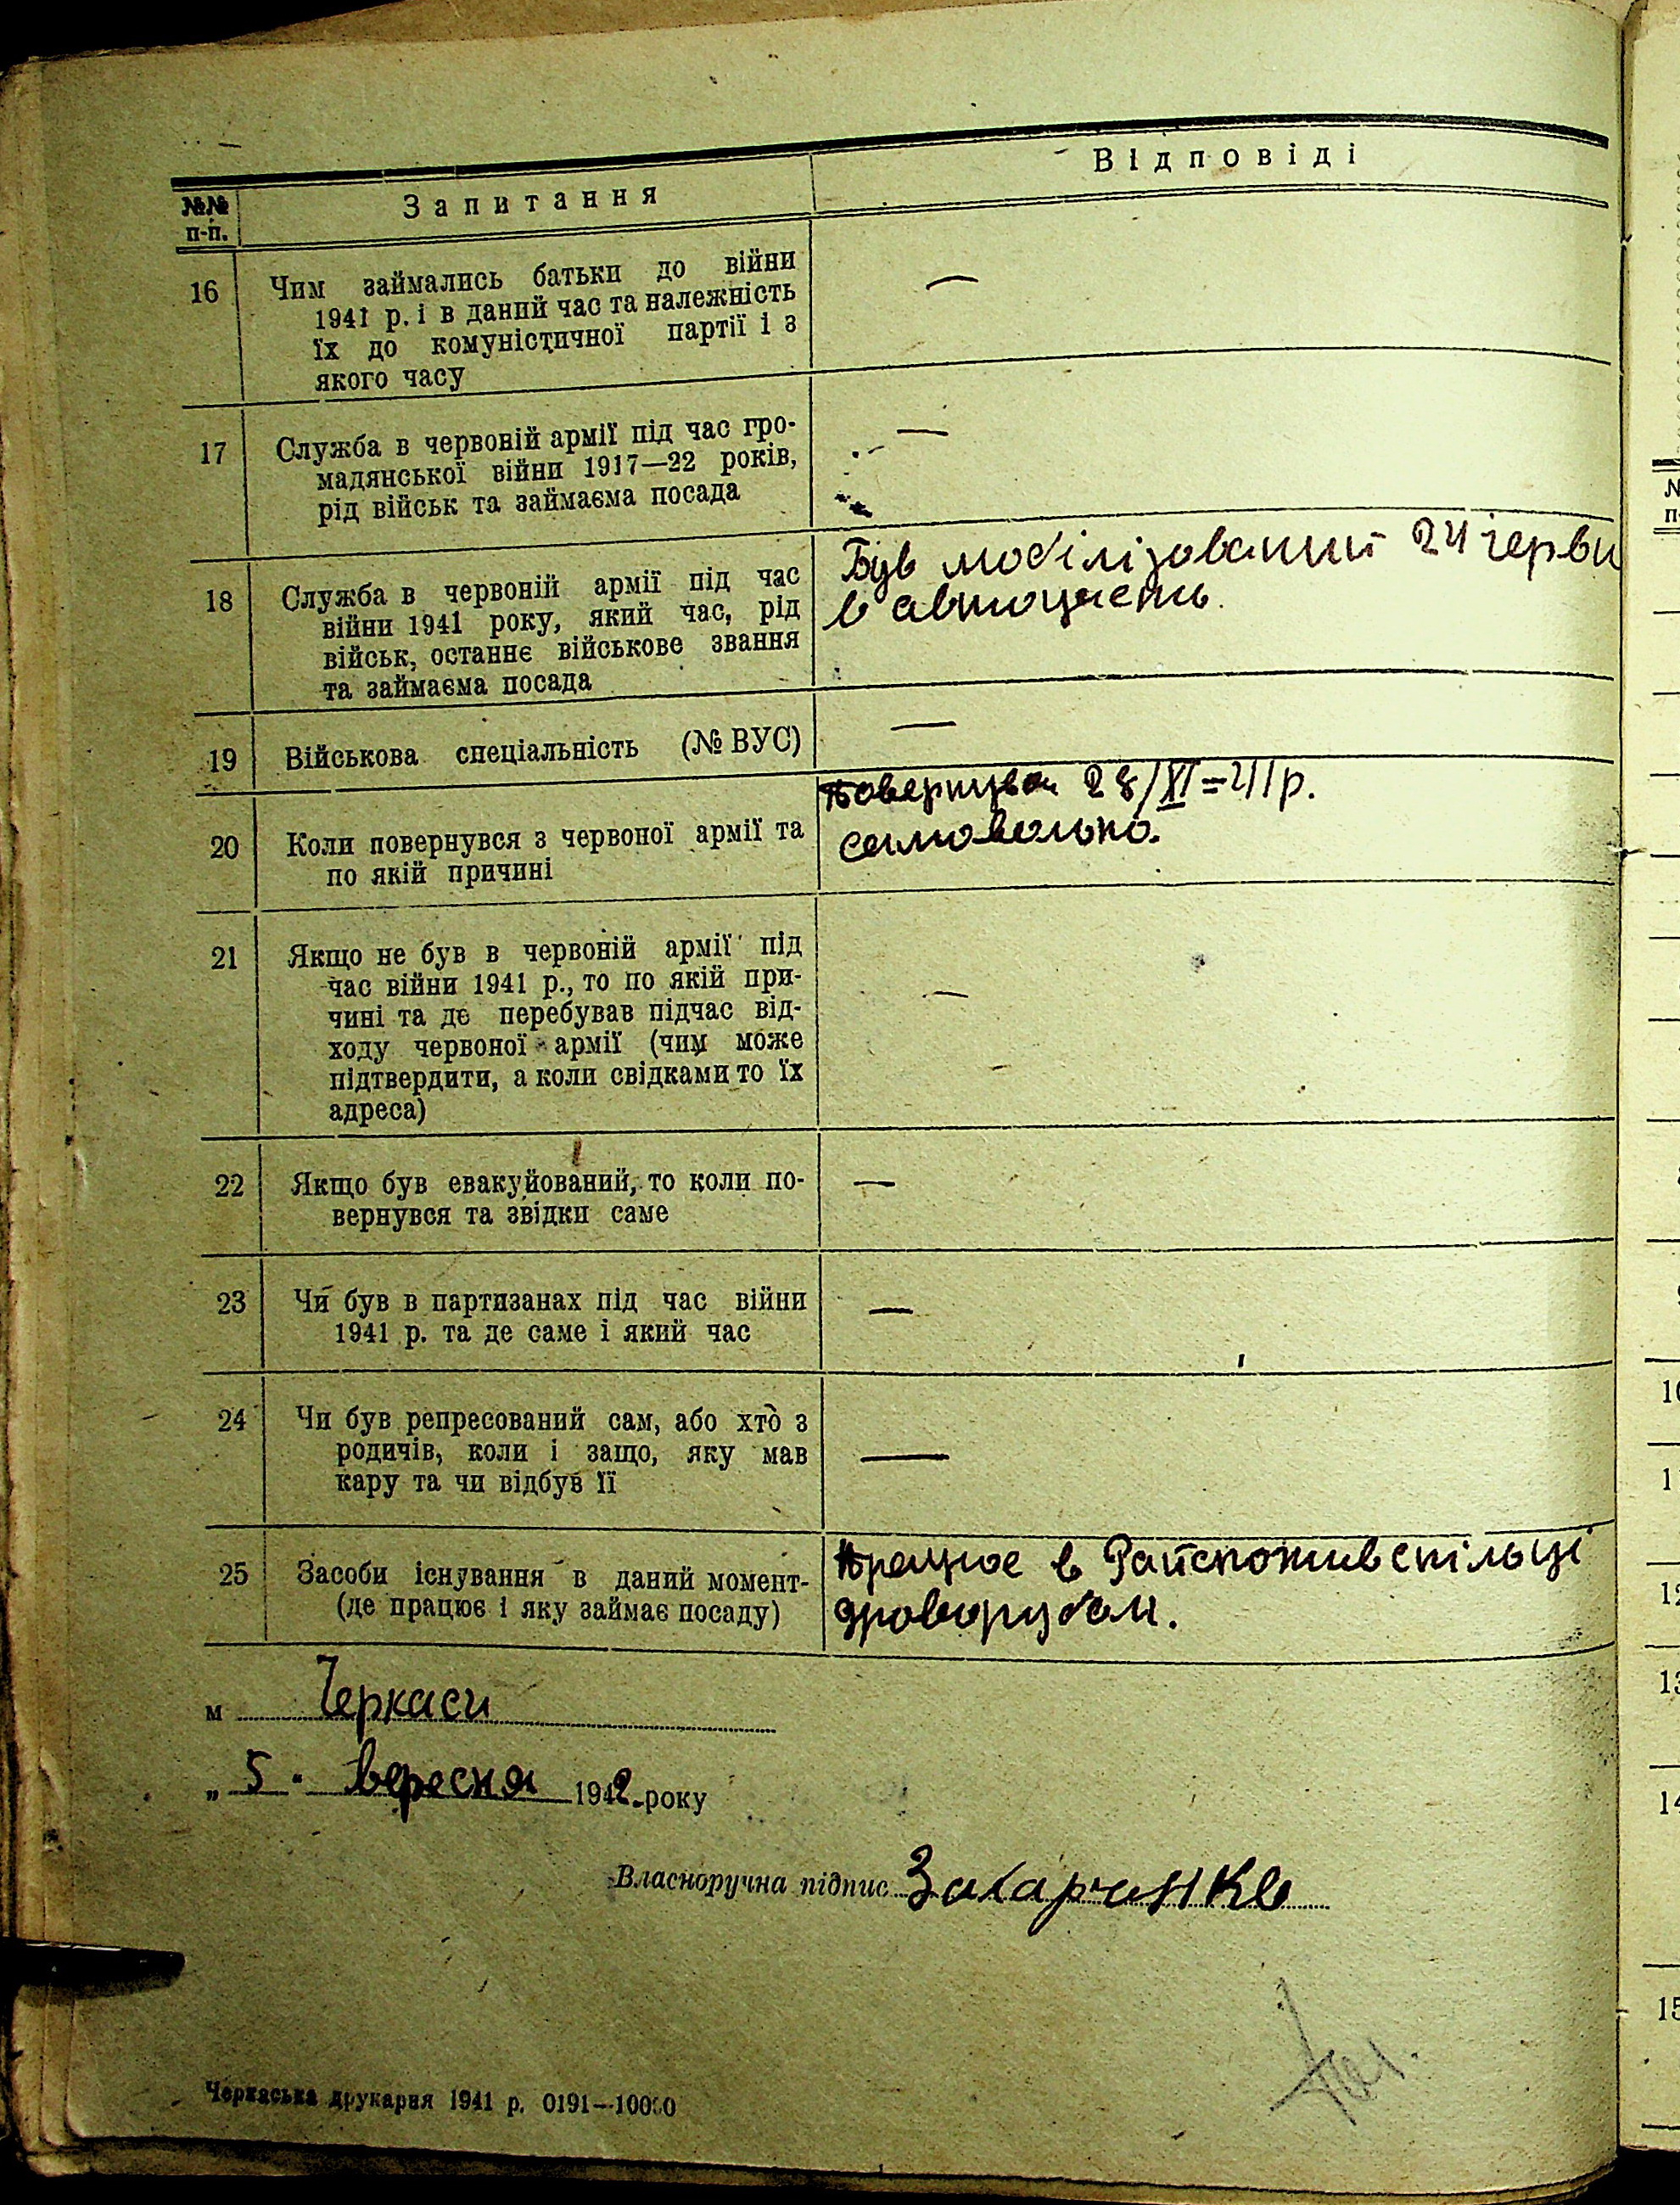 №№
п-п.
Запитання
Відповіді
16
Чим займались батьки до війни
1941 р. і в даний час та належність
їх до комуністичної партії і з
якого часу
—
17
Служба в червоній армії під час гро-
мадянської війни 1917—22 років,
рід військ та займаєма посада
—
18
Служба в червоній армії під час
війни 1941 року, який час, рід
військ, останнє військове звання
та займаєма посада
Був мобілізований 24 червн
в авточасть.
19
Військова спеціальність (№ ВУС)
—
20
Коли повернувся з червоної армії та
по якій причині
Повернувся 28/XI=41 р.
самовольно.
21
Якщо не був в червоній армії під
час війни 1941 р., то по якій при-
чині та де перебував підчас від-
ходу червоної армії (чим може
підтвердити, а коли свідками то їх
адреса)
—
22
Якщо був евакуйований, то коли по-
вернувся та звідки саме
—
23
Чи був в партизанах під час війни
1941 р. та де саме і який час
—
24
Чи був репресований сам, або хто з
родичів, коли і защо, яку мав
кару та чи відбув її
—
25
Засоби існування в даний момент-
(де працює і яку займає посаду)
Працює в Райспоживспільці
дроворубом.
м Черкаси
„ 5 " вересня 1942 року
Власноручна підпис Захарченко
Черкаська друкарня 1941 р. 0191—10000
№
п-
10
11
12
13
14
15